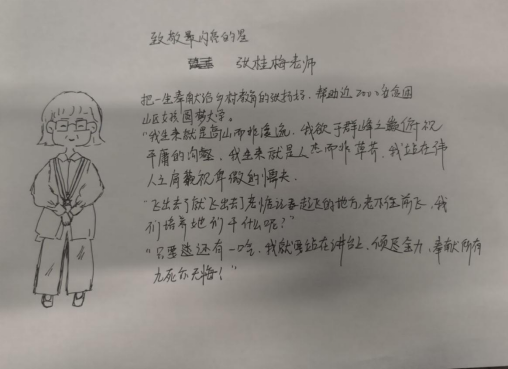 致敬最闪亮的星
张桂梅老师
把一生奉献给乡村教育的张校长，帮助近2000名贫困
山区女孩圆梦大学。
"我生来就是高山而非溪流，我欲于群峰之巅俯视
平庸的沟壑。我生来就是人杰而非草芥，我站在伟
人之肩藐视卑微的懦夫。
"飞出去了就飞出去了老惦记着起飞的地方，老不往前飞，我
们培养她们干什么呢？"
"只要还有一口气，我就要站在讲台上，倾尽全力，奉献所有
九死亦无悔！"